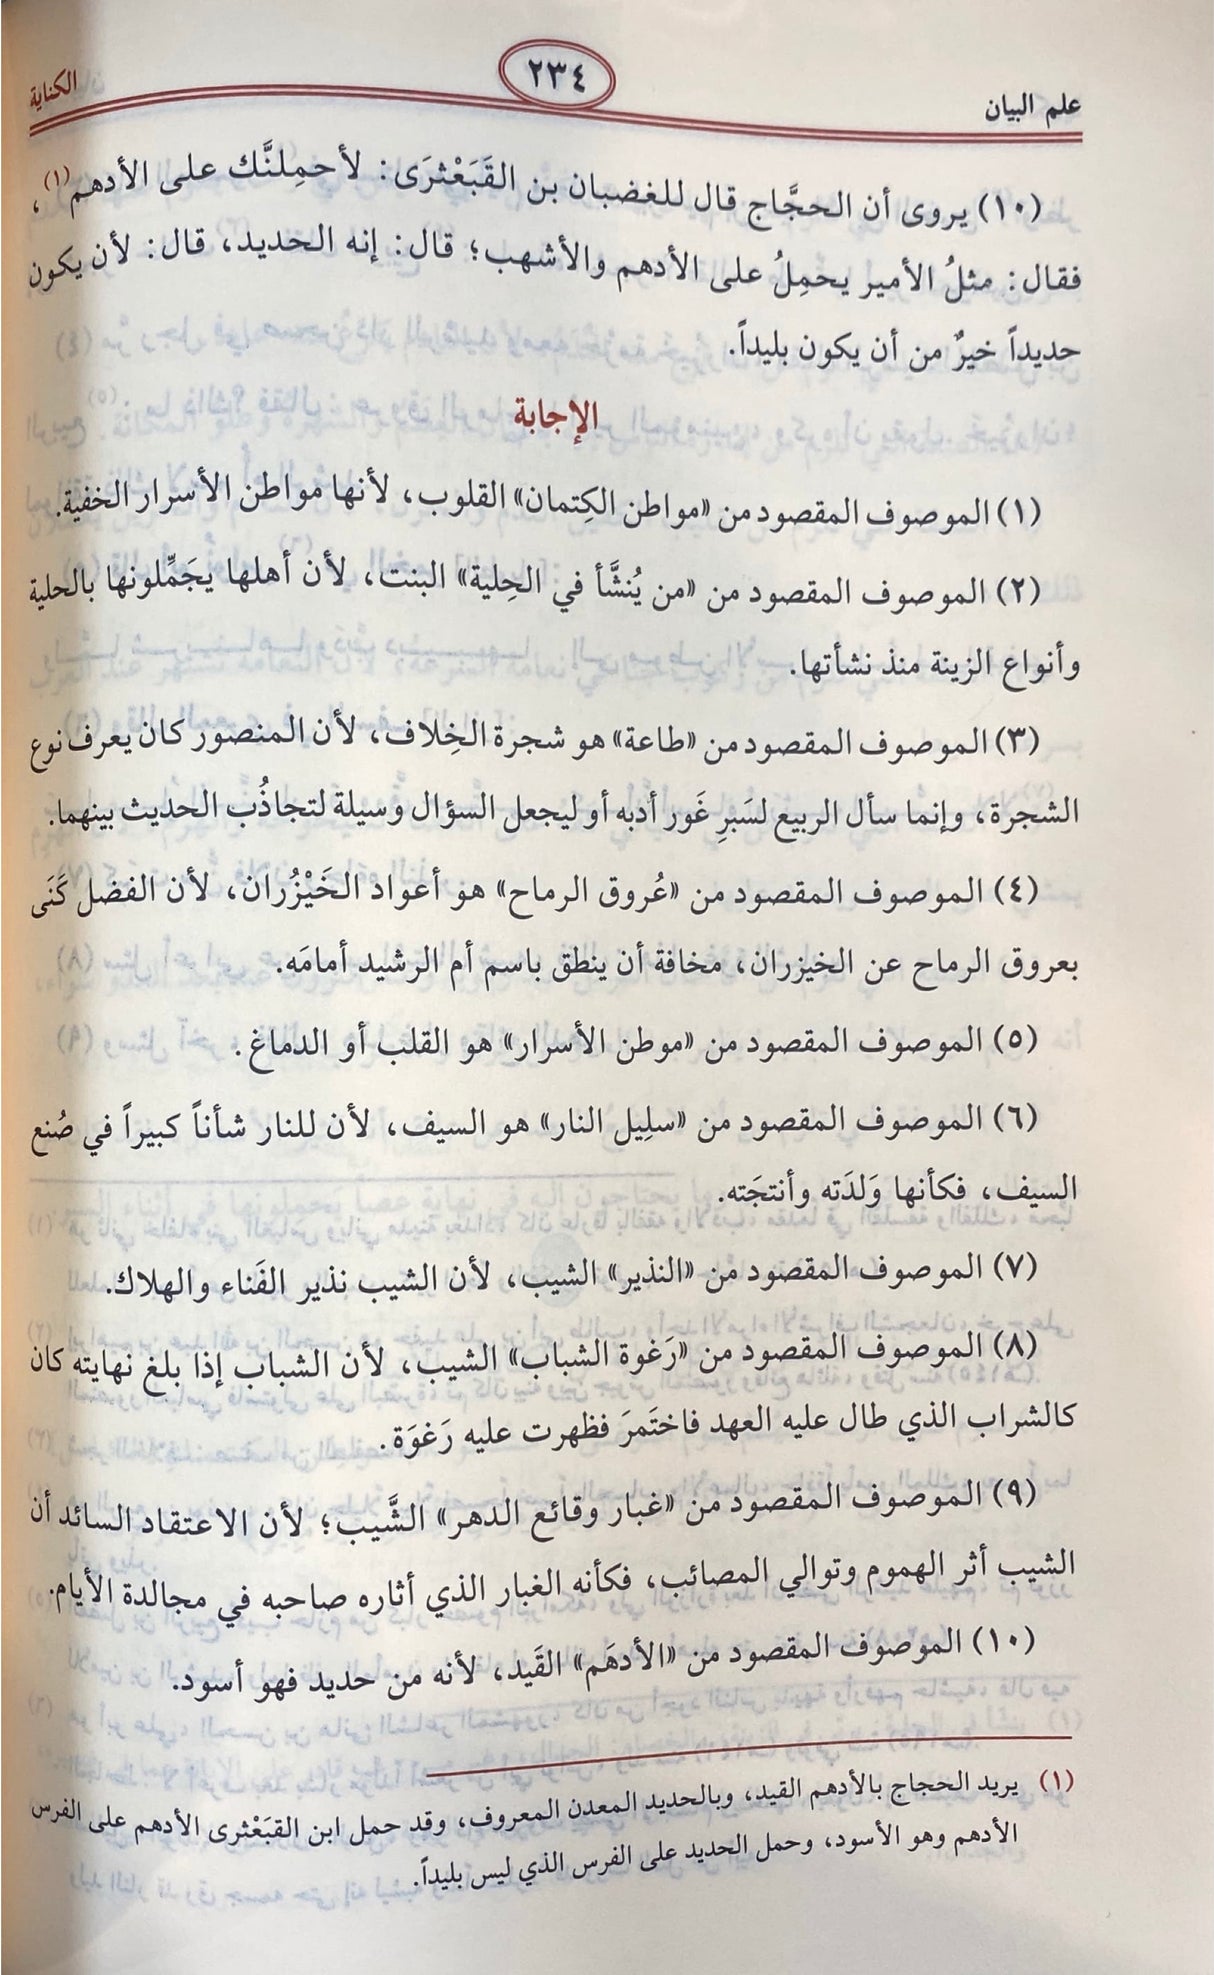 علم البيان
٢٣٤
الكناية
(١٠) يروى أن الحجَّاج قال للغضبان بن القَبَعْثرَى: لأحمِلنَّك على الأدهم(١)،
فقال: مثلُ الأمير يحمِلُ على الأدهم والأشهب؛ قال: إنه الحديد، قال: لأن يكون
حديداً خيرٌ من أن يكون بليداً.
الإجابة
(١) الموصوف المقصود من «مواطن الكِتمان» القلوب، لأنها مواطن الأسرار الخفية.
(٢) الموصوف المقصود من «من يُنشَّأ في الحِلية» البنت، لأن أهلها يجَمِّلونها بالحلية
وأنواع الزينة منذ نشأتها.
(٣) الموصوف المقصود من «طاعة» هو شجرة الخِلاف، لأن المنصور كان يعرف نوع
الشجرة، وإنما سأل الربيع لسَبرِ غَور أدبه أو ليجعل السؤال وسيلة لتجاذُب الحديث بينهما.
(٤) الموصوف المقصود من «عُروق الرماح» هو أعواد الخَيْزُران، لأن الفضل كَنَى
بعروق الرماح عن الخيزران، مخافة أن ينطق باسم أم الرشيد أمامَه.
(٥) الموصوف المقصود من «موطن الأسرار» هو القلب أو الدماغ.
(٦) الموصوف المقصود من «سلِيل النار» هو السيف، لأن للنار شأناً كبيراً في صُنع
السيف، فكأنها وَلدَته وأنتجَته.
(٧) الموصوف المقصود من «النذير» الشيب، لأن الشيب نذير الفَناء والهلاك.
(٨) الموصوف المقصود من «رَغوة الشباب» الشيب، لأن الشباب إذا بلغ نهايته كان
كالشراب الذي طال عليه العهد فاختَمرَ فظهرت عليه رَغوَة.
(٩) الموصوف المقصود من «غبار وقائع الدهر» الشَّيب؛ لأن الاعتقاد السائد أن
الشيب أثر الهموم وتوالي المصائب، فكأنه الغبار الذي أثاره صاحبه في مجالدة الأيام.
(١٠) الموصوف المقصود من «الأدهَم» القَيد، لأنه من حديد فهو أسود.
(١) يريد الحجاج بالأدهم القيد، وبالحديد المعدن المعروف، وقد حمل ابن القبَعْثرى الأدهم على الفرس
الأدهم وهو الأسود، وحمل الحديد على الفرس الذي ليس بليداً.